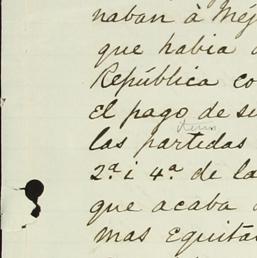 naban à Méj
que habia
República co
el pago de su
las partidas
2.ª i 4.ª de la
que acaba
mas equita